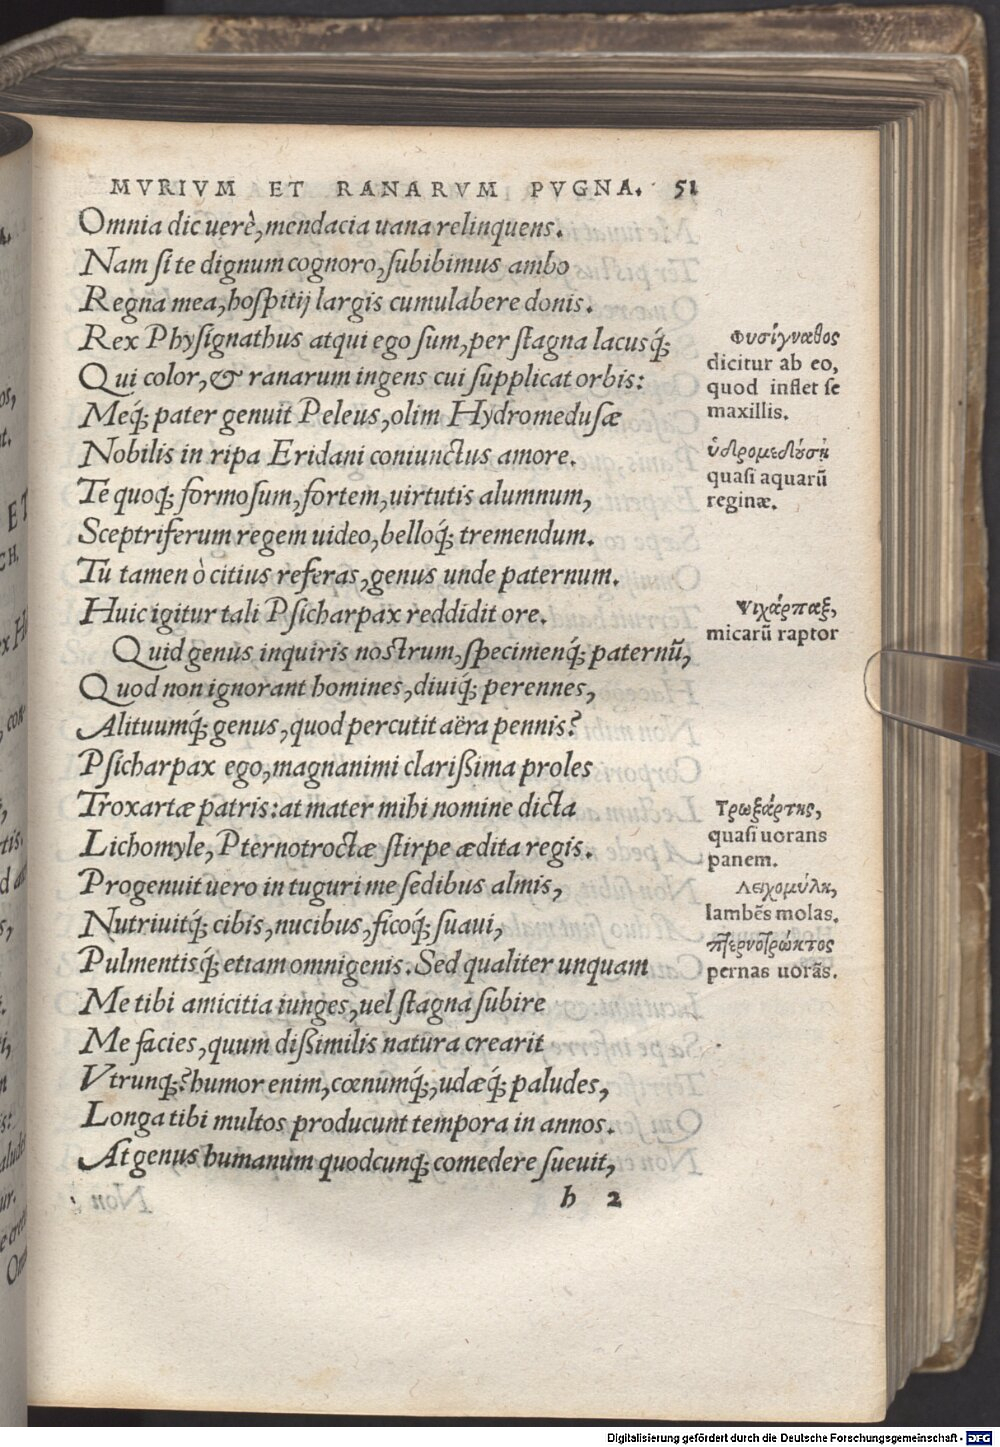 MVRIVM ET RANARVM PVGNA. 51
Omnia dic uerè, mendacia uana relinquens.
Nam si te dignum cognoro, subibimus ambo
Regna mea, hospitij largis cumulabere donis.
Rex Physignathus atqui ego sum, per stagna lacusq́;
Qui color, & ranarum ingens cui supplicat orbis:
Meq́; pater genuit Peleus, olim Hydromedusæ
Nobilis in ripa Eridani coniunctus amore.
Te quoq; formosum, fortem, uirtutis alumnum,
Sceptriferum regem uideo, belloq́; tremendum.
Tu tamen ò citius referas, genus unde paternum.
Huic igitur tali Psicharpax reddidit ore.
Quid genus inquiris nostrum, specimenq́; paternũ,
Quod non ignorant homines, diuiq́; perennes,
Alituumq́; genus, quod percutit aëra pennis?
Psicharpax ego, magnanimi clarißima proles
Troxartæ patris: at mater mihi nomine dicta
Lichomyle, Pternotroctæ stirpe ædita regis.
Progenuit uero in tuguri me sedibus almis,
Nutriuitq́; cibis, nucibus, ficoq́; suaui,
Pulmentisq́; etiam omnigenis. Sed qualiter unquam
Me tibi amicitia iunges, uel stagna subire
Me facies, quum dißimilis natura crearit
Vtrunq;? humor enim, cœnumq́;, udæq́; paludes,
Longa tibi multos producunt tempora in annos.
At genus humanum quodcunq; comedere sueuit,
h 2
Φυσίγναθος
dicitur ab eo,
quod inflet se
maxillis.
ὑδρομεδούση
quasi aquarũ
reginæ.
Ψιχάρπαξ,
micarũ raptor
Τρωξάρτης,
quasi uorans
panem.
Λειχομύλη,
lambẽs molas.
πτερνοτρώκτος
pernas uorãs.
Digitalisierung gefördert durch die Deutsche Forschungsgemeinschaft - DFG